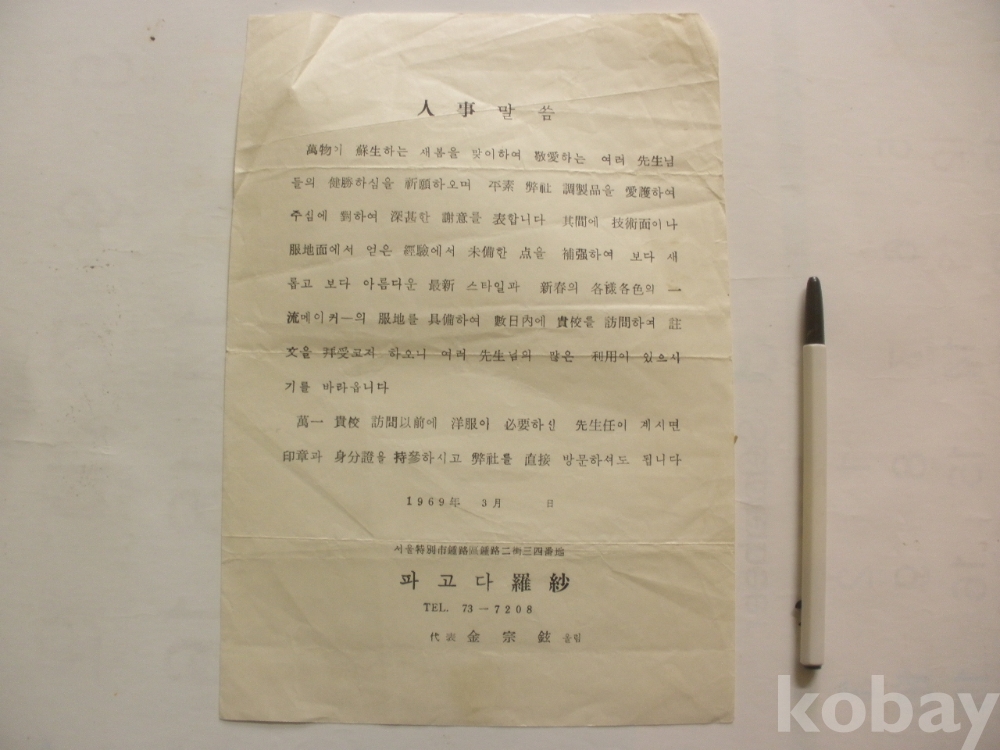 人事 말씀
萬物이 蘇生하는 새봄을 맞이하여 敬愛하는 여러 先生님
들의 健勝하심을 祈願하오며 平素 弊社 調製品을 愛護하여
주심에 對하여 深甚한 謝意를 表합니다 其間에 技術面이나
服地面에서 얻은 經驗에서 未備한 点을 補强하여 보다 새
롭고 보다 아름다운 最新 스타일과 新春의 各樣各色의 一
流메이커ー의 服地를 具備하여 數日內에 貴校를 訪問하여 註
文을 拜受코저 하오니 여러 先生님의 많은 利用이 있으시
기를 바라옵니다
萬一 貴校 訪問以前에 洋服이 必要하신 先生任이 계시면
印章과 身分證을 持參하시고 弊社를 直接 방문하셔도 됩니다
1969年 3月 日
서울特別市鍾路區鍾路二街三四番地
파고다羅紗
TEL. 73ー7208
代表 金宗鉉 올림
kobay